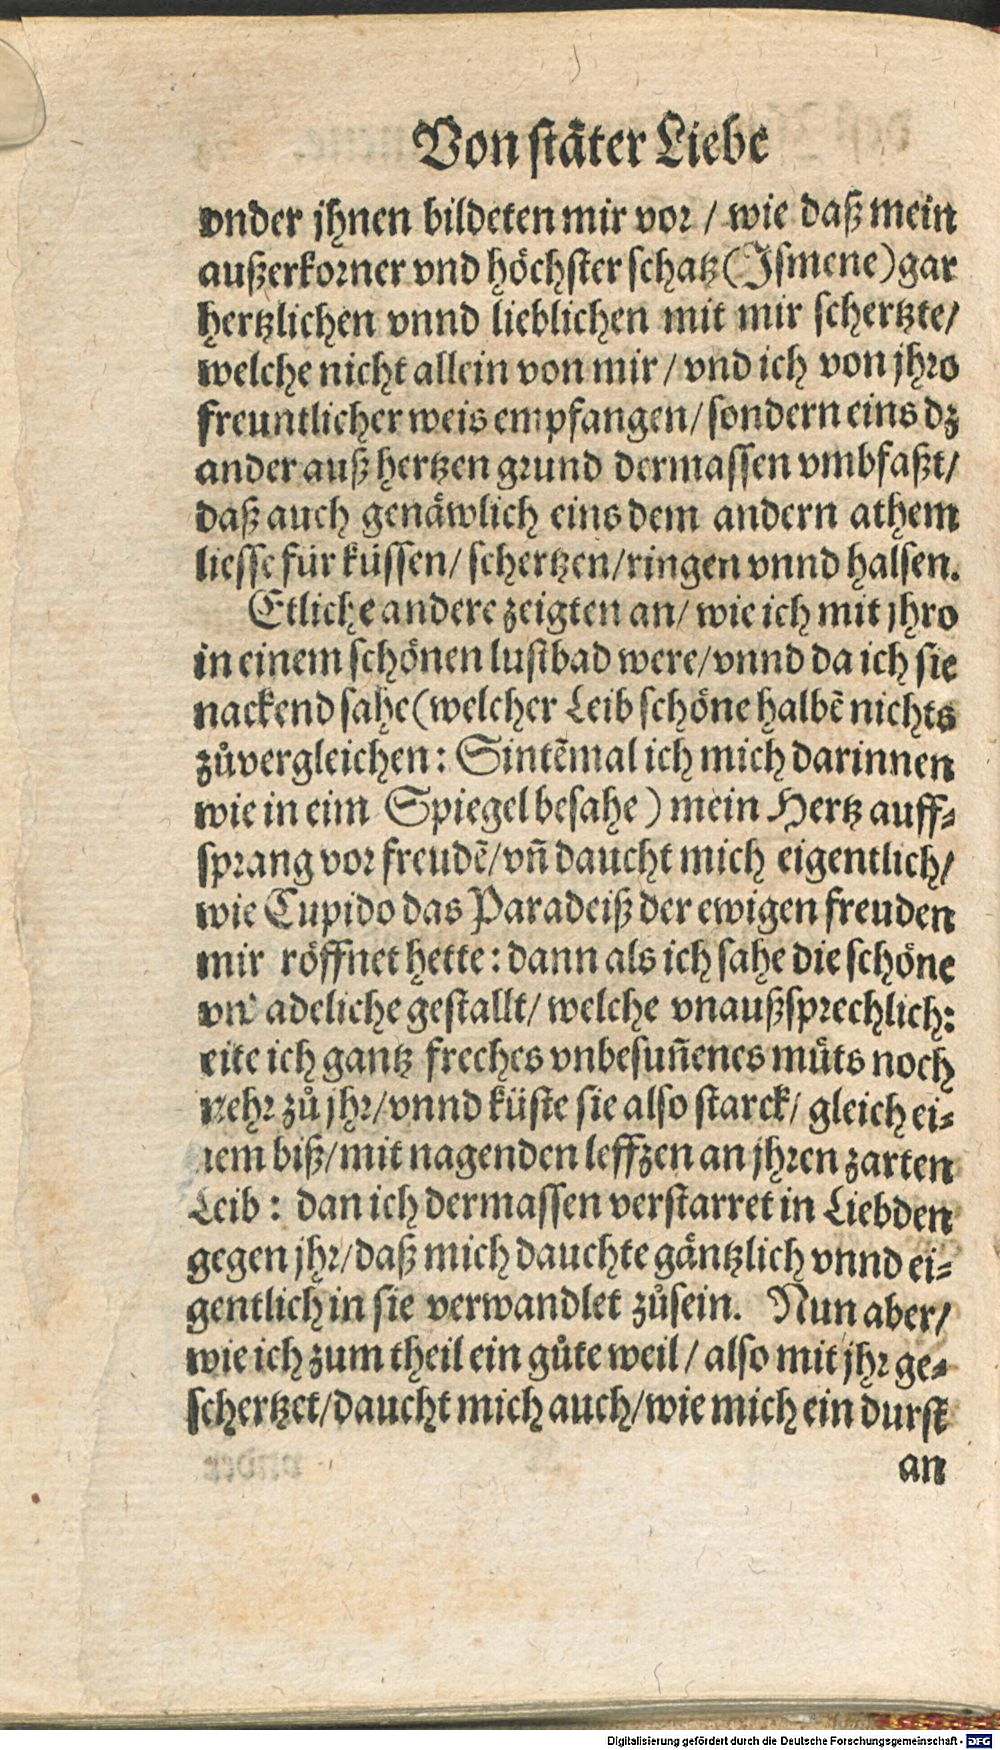 Von stäter Liebe
vnder jhnen bildeten mir vor / wie daß mein
außerkorner vnd höchster schatz (Ismene) gar
hertzlichen vnnd lieblichen mit mir schertzte/
welche nicht allein von mir / vnd ich von jhro
freuntlicher weis empfangen/ sondern eins dz
ander auß hertzen grund dermassen vmbfaßt/
daß auch genäwlich eins dem andern athem
liesse für küssen/ schertzen/ringen vnnd halsen.
Etliche andere zeigten an/ wie ich mit jhro
in einem schönen lustbad were/vnnd da ich sie
nackend sahe (welcher Leib schöne halbẽ nichts
zůvergleichen: Sintẽmal ich mich darinnen
wie in eim Spiegel besahe) mein Hertz auff-
sprang vor freudẽ/vñ daucht mich eigentlich/
wie Cupido das Paradeiß der ewigen freuden
mir röffnet hette: dann als ich sahe die schöne
vn adeliche gestallt/ welche vnaußsprechlich:
eite ich gantz freches vnbesuñenes můts noch
mehr zů jhr/vnnd küste sie also starck/ gleich ei-
nem biß/mit nagenden leffzen an jhren zarten
Leib : dan ich dermassen verstarret in Liebden
gegen jhr/daß mich dauchte gäntzlich vnnd ei-
gentlich in sie verwandlet zůsein. Nun aber/
wie ich zum theil ein gůte weil / also mit jhr ge-
schertzet/daucht mich auch/wie mich ein durst
an
Digitalisierung gefördert durch die Deutsche Forschungsgemeinschaft - DFG